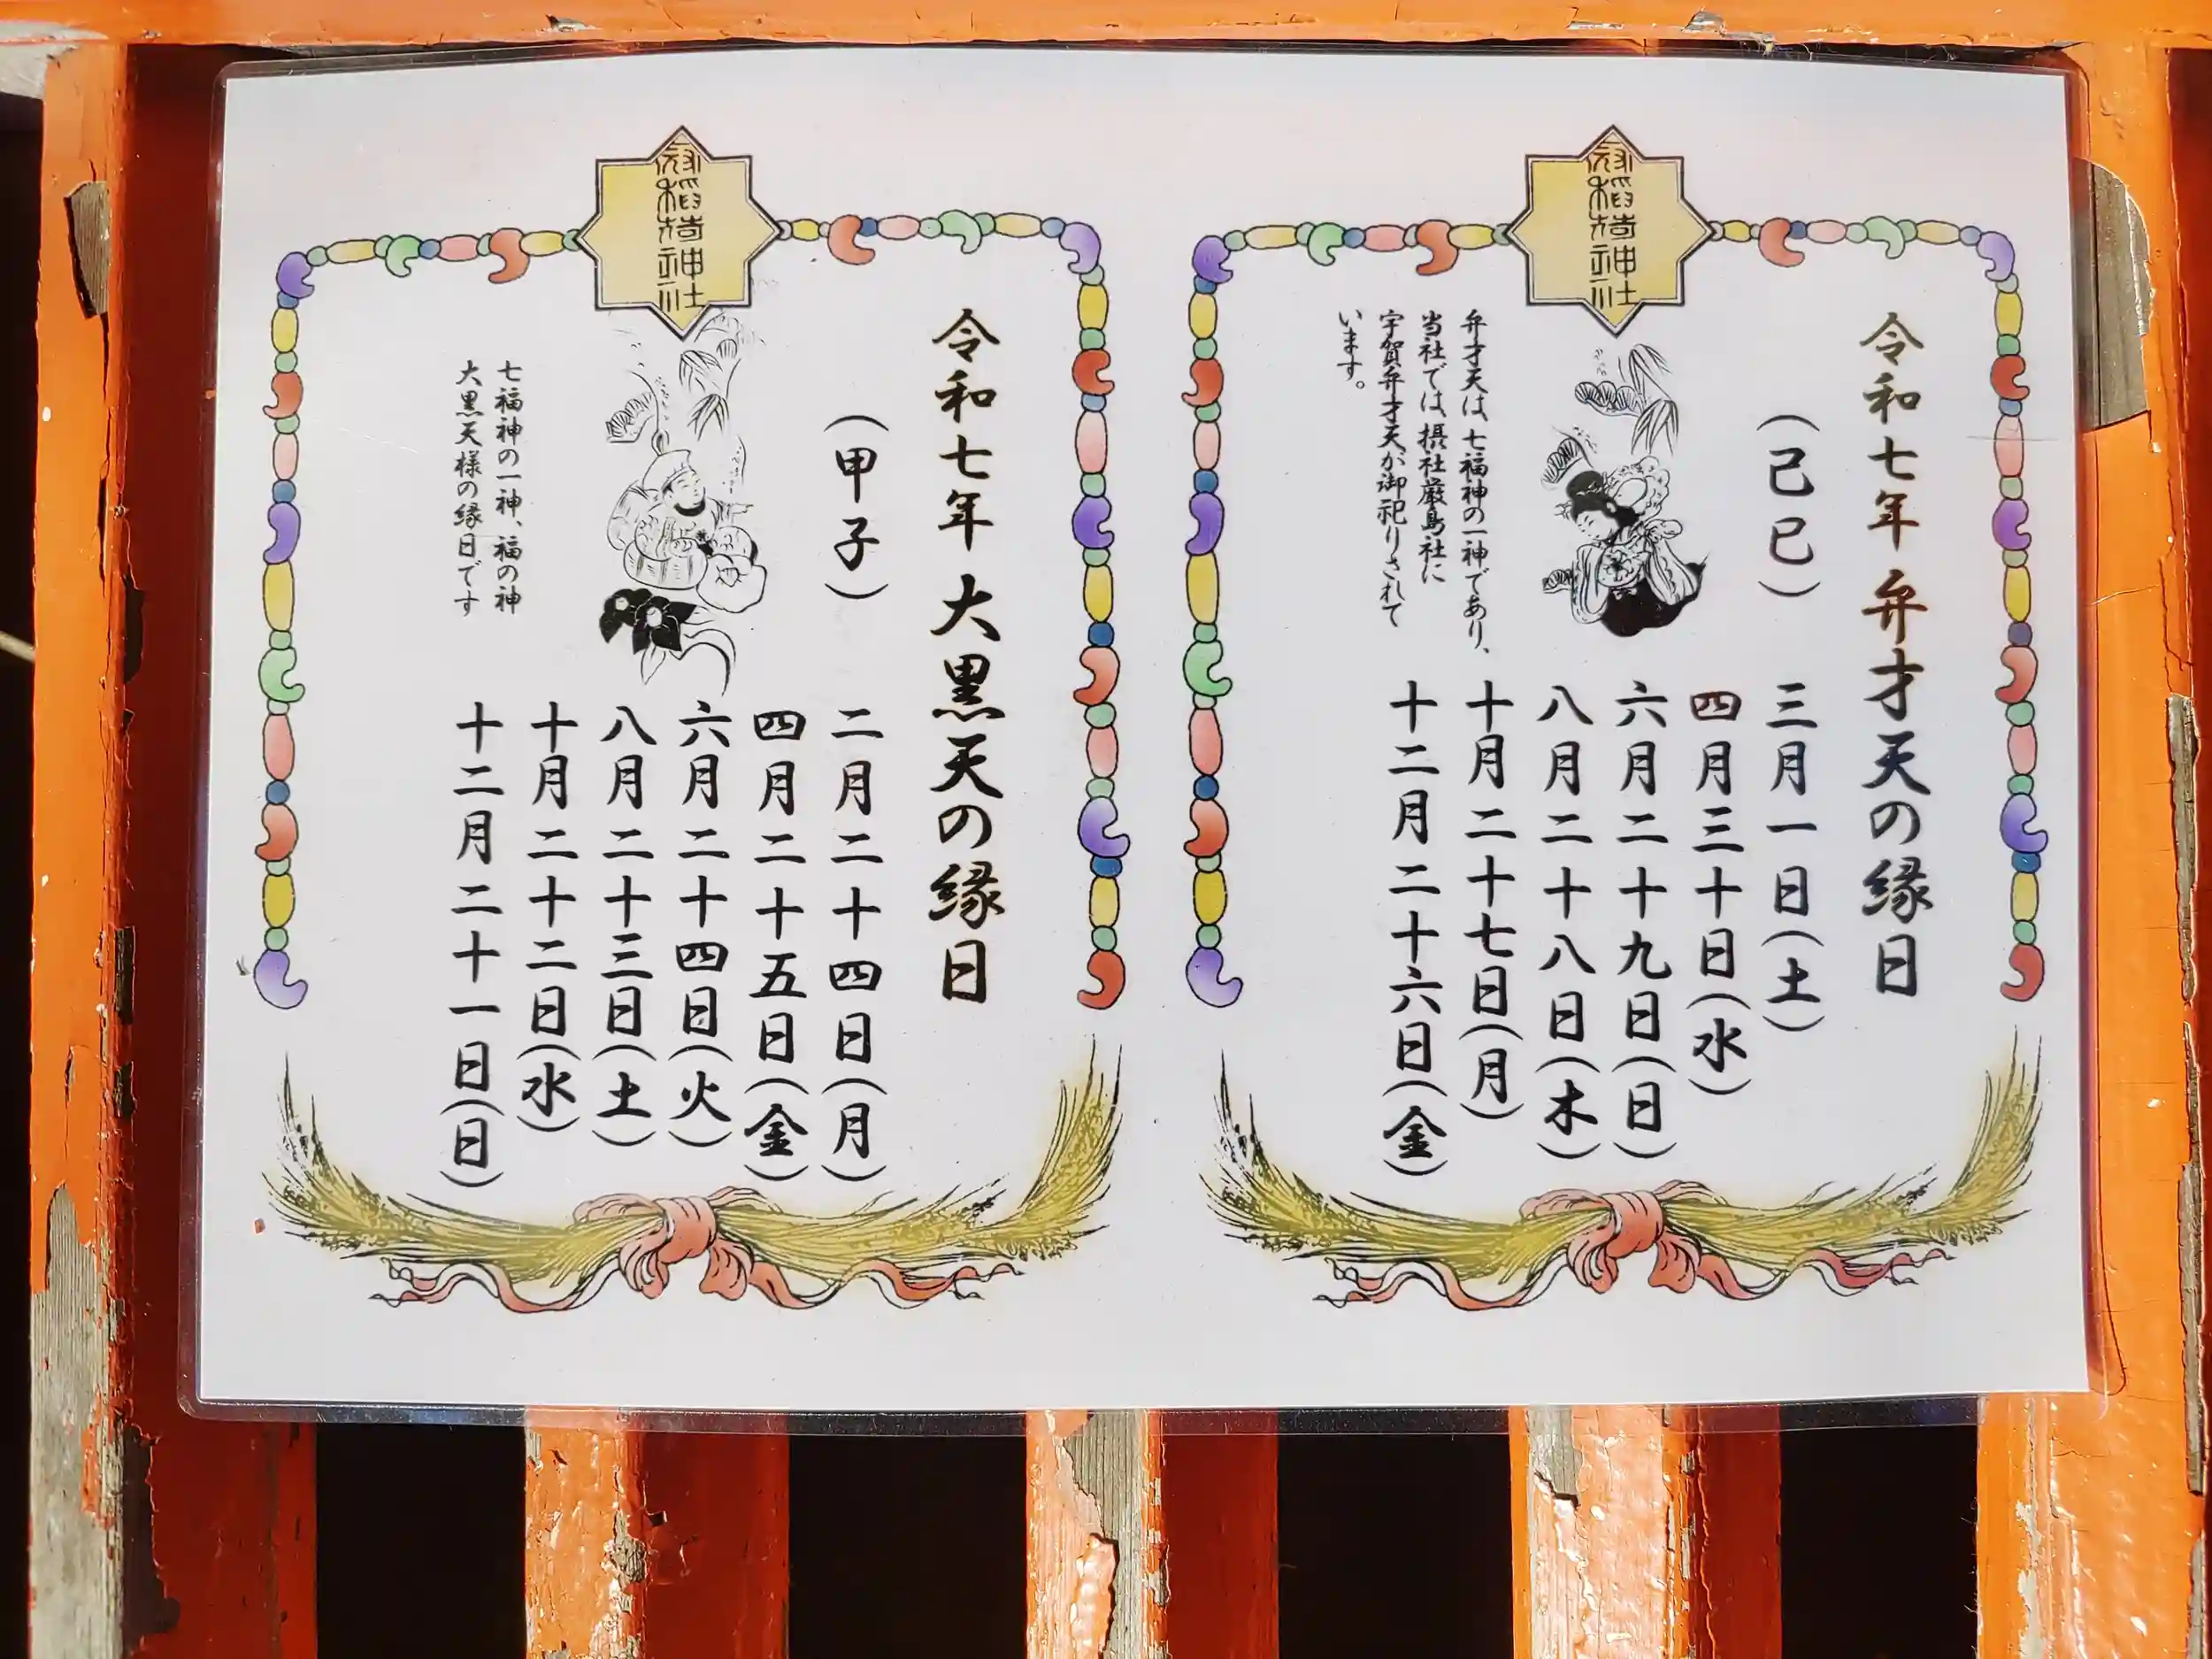 冠稲荷神社
令和七年 弁才天の縁日
(己巳)
三月一日(土)
四月三十日(水)
六月二十九日(日)
八月二十八日(木)
十月二十七日(月)
十二月二十六日(金)
弁才天は、七福神の一神であり、
当社では、摂社厳島社に
宇賀弁才天が御祀りされて
います。
冠稲荷神社
令和七年 大黒天の縁日
(甲子)
二月二十四日(月)
四月二十五日(金)
六月二十四日(火)
八月二十三日(土)
十月二十二日(水)
十二月二十一日(日)
七福神の一神、福の神
大黒天様の縁日です